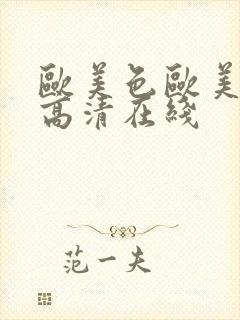 歐美色歐美
高清在綫
范一夫